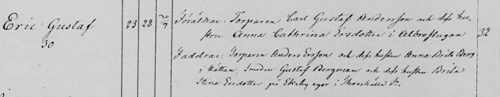 Eric Gustaf
30
23 28 30/9
Föräldrar: Torparen Carl Gustaf Anderson och dess hustru
Anna Cathrina Ersdotter i Albrostugan
32
Faddrar: Torparen Anders Ersson och dess hustru Anna Brita Berg
i Hättan. Smeden Gustaf Bergman och dess hustru Brita
Stina Ersdotter på egor i